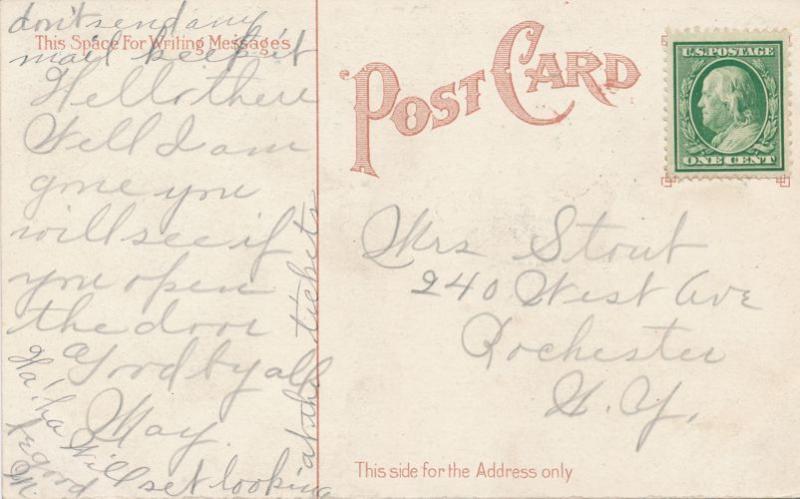 don't send any
This Space For Writing Messages
mail keep it
Hello there
Well I am
gone you
will see if
you open
the door
Goodby all
May.
Ha! ha
be good
M.
Will set looking
at the tickets
POST CARD
U.S. POSTAGE
ONE CENT
Mrs Stout
240 West Ave
Rochester
N. Y.
This side for the Address only